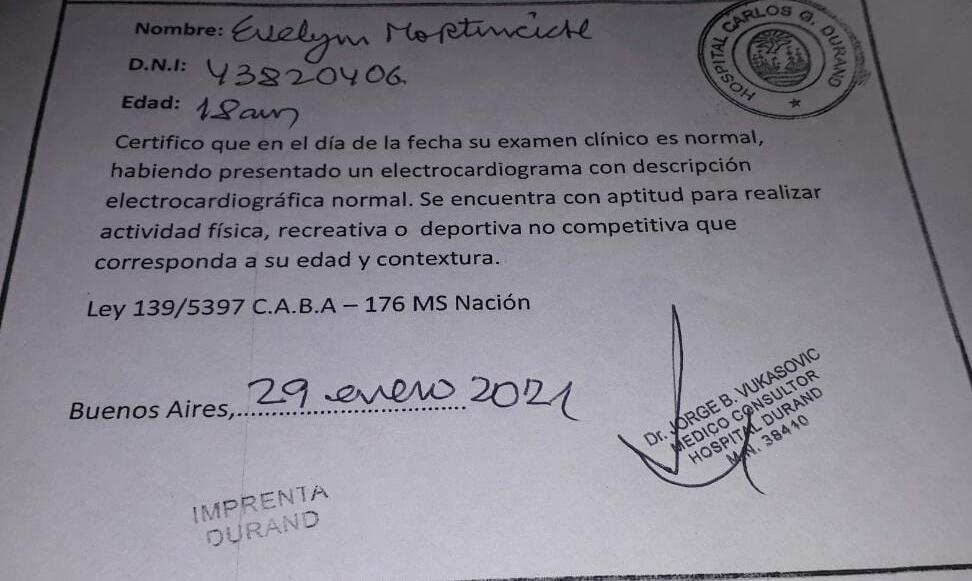 Nombre: Evelyn
HOSPITAL CARLOS G. DURAND
D.N.I: 43820406
Edad: 18 años
Certifico que en el día de la fecha su examen clínico es normal,
habiendo presentado un electrocardiograma con descripción
electrocardiográfica normal. Se encuentra con aptitud para realizar
actividad física, recreativa o deportiva no competitiva que
corresponda a su edad y contextura.
Ley 139/5397 C.A.B.A – 176 MS Nación
Buenos Aires, 29 enero 2021
Dr. JORGE B. VUKASOVIC
MEDICO CONSULTOR
HOSPITAL DURAND
M.N. 38410
IMPRENTA
DURAND